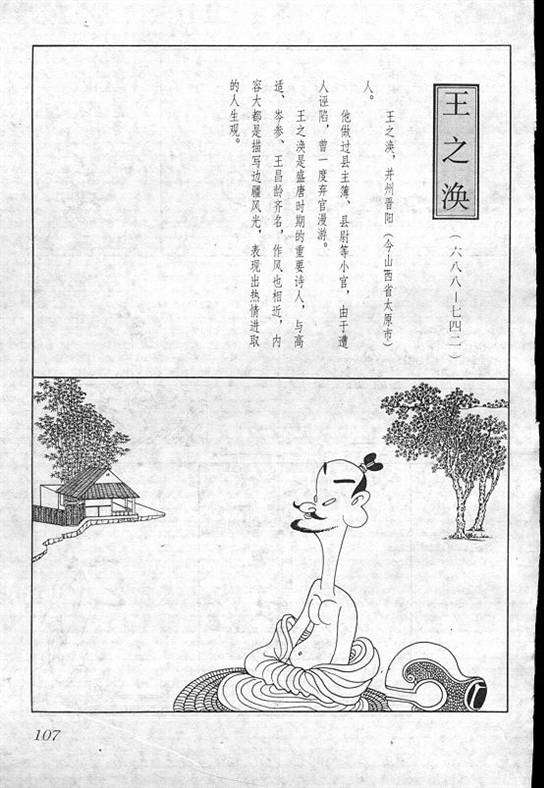 王之涣
（六八八－七四二）
王之涣，并州晋阳（今山西省太原市）
人。
他做过县主簿、县尉等小官，由于遭
人诬陷，曾一度弃官漫游。
王之涣是盛唐时期的重要诗人，与高
适、岑参、王昌龄齐名，作风也相近，内
容大都是描写边疆风光，表现出热情进取
的人生观。
107